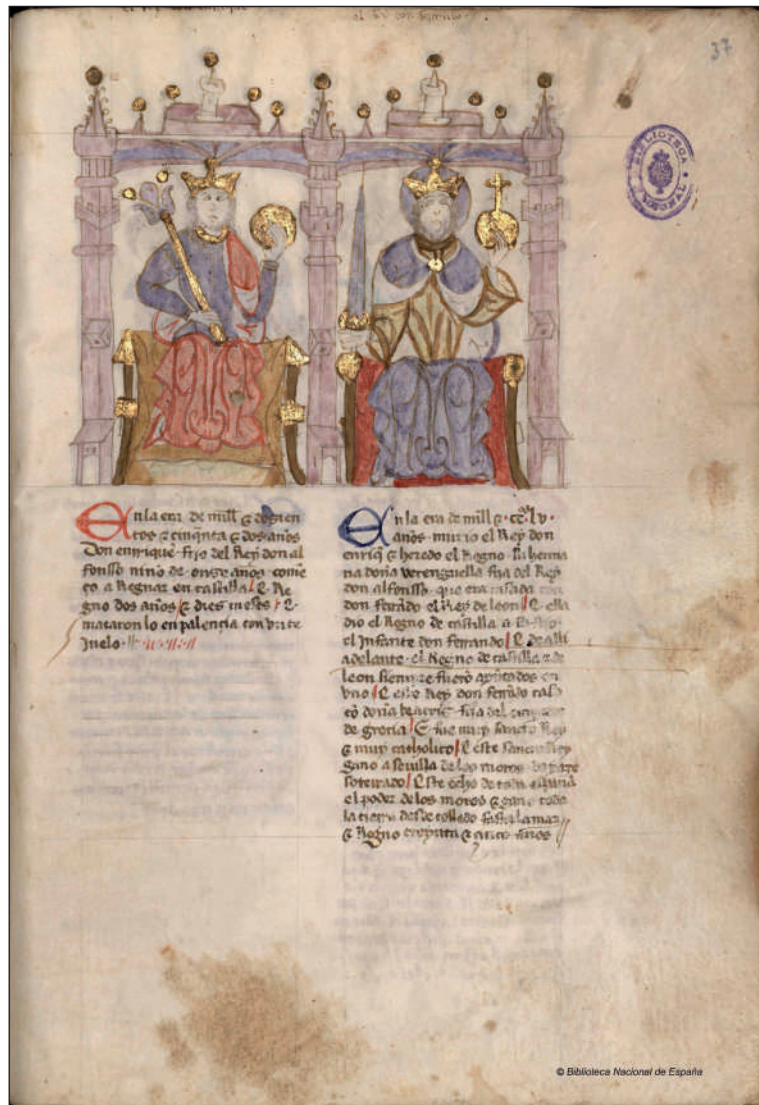 37
BIBLIOTECA
NACIONAL
En la era de mill & dosien
tos & cinqnta & dos años
Don enrique fijo del Rey don al
fonsso nino de onse años comē
ço a Regnar en castilla E Re
gno dos años & dies meses E
mataron lo en palençia con vn te
juelo
En la era de mill & çc lv
años murio el Rey don
enriq & heredo el Regno su herma
na doña verenguella fija del Rey
don alfonsso que era casada con
don ferrādo el Rey de leon E ella
dio el Regno de castilla a su fijo
el Infante don ferrando E de alli
adelante el Regno de castilla & de
leon sienpre fuerō ayūtados en
vno E este Rey don ferrādo cas
co doña beatris fija del
de greçia E fue muy sancto Rey
& muy catholico E este sancto Rey
gano a seuilla de los moros do yaze
soterrado Este echo de toda españa
el poder de los moros & gano toda
la tierra desde tolledo fasta la mar
& Regno treynta & años
© Biblioteca Nacional de España